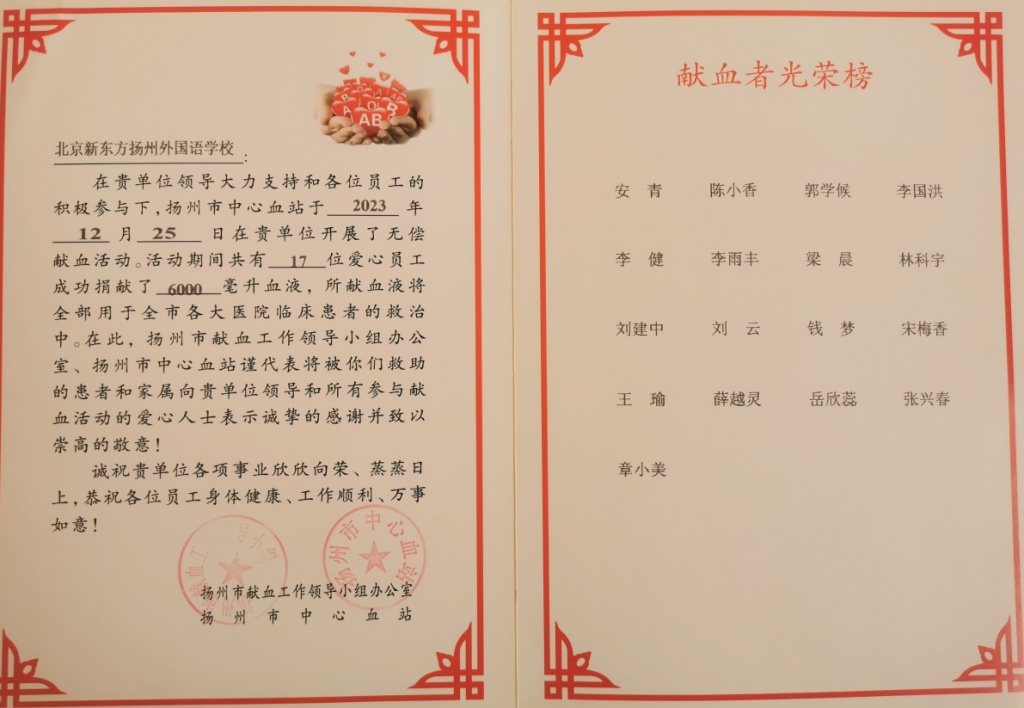 B
O
A
AB
A
O
B
AB
北京新东方扬州外国语学校：
在贵单位领导大力支持和各位员工的
积极参与下,扬州市中心血站于 2023 年
12 月 25 日在贵单位开展了无偿
献血活动。活动期间共有 17 位爱心员工
成功捐献了 6000 毫升血液，所献血液将
全部用于全市各大医院临床患者的救治
中。在此，扬州市献血工作领导小组办公
室、扬州市中心血站谨代表将被你们救助
的患者和家属向贵单位领导和所有参与献
血活动的爱心人士表示诚挚的感谢并致以
崇高的敬意！
诚祝贵单位各项事业欣欣向荣、蒸蒸日
上,恭祝各位员工身体健康、工作顺利、万事
如意！
扬州市中心血站
扬州市献血工作领导小组办公室
扬州市中心血站
献血者光荣榜
安 青 陈小香 郭学候 李国洪
李 健 李雨丰 梁 晨 林科宇
刘建中 刘 云 钱 梦 宋梅香
王 瑜 薛越灵 岳欣蕊 张兴春
章小美